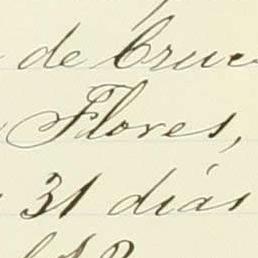 de Cruce
Flores,
31 días